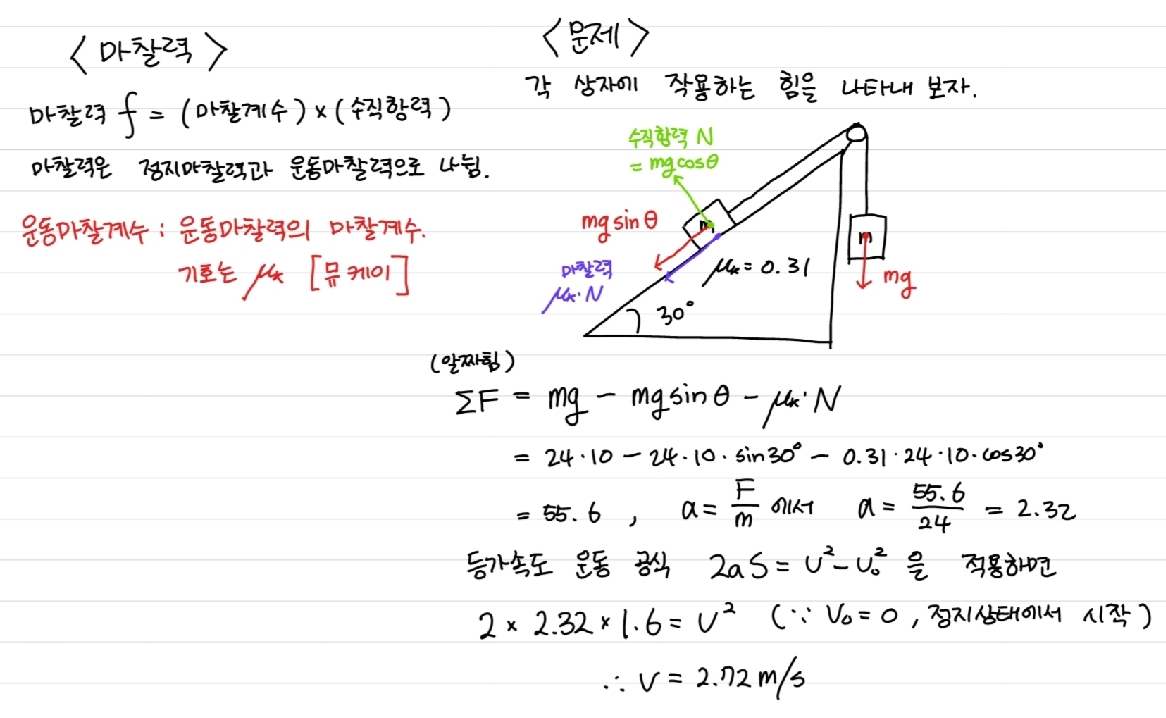 <마찰력>
마찰력 f = (마찰계수) × (수직항력)
마찰력은 정지마찰력과 운동마찰력으로 나뉨.
운동마찰계수 : 운동마찰력의 마찰계수.
기호는 μₖ [뮤 케이]
<문제>
각 상자에 작용하는 힘을 나타내 보자.
수직항력 N
= mg cosθ
mg sin θ
m
m
마찰력
μₖ·N
μₖ = 0.31
30°
mg
(알짜힘)
ΣF = mg − mg sin θ − μₖ·N
= 24·10 − 24·10·sin30° − 0.31·24·10·cos30°
= 55.6 , a = F/m 에서 a = 55.6/24 = 2.32
등가속도 운동 공식 2aS = v² − v₀² 을 적용하면
2 × 2.32 × 1.6 = v² (∵ V₀ = 0 , 정지상태에서 시작)
∴ v = 2.72 m/s